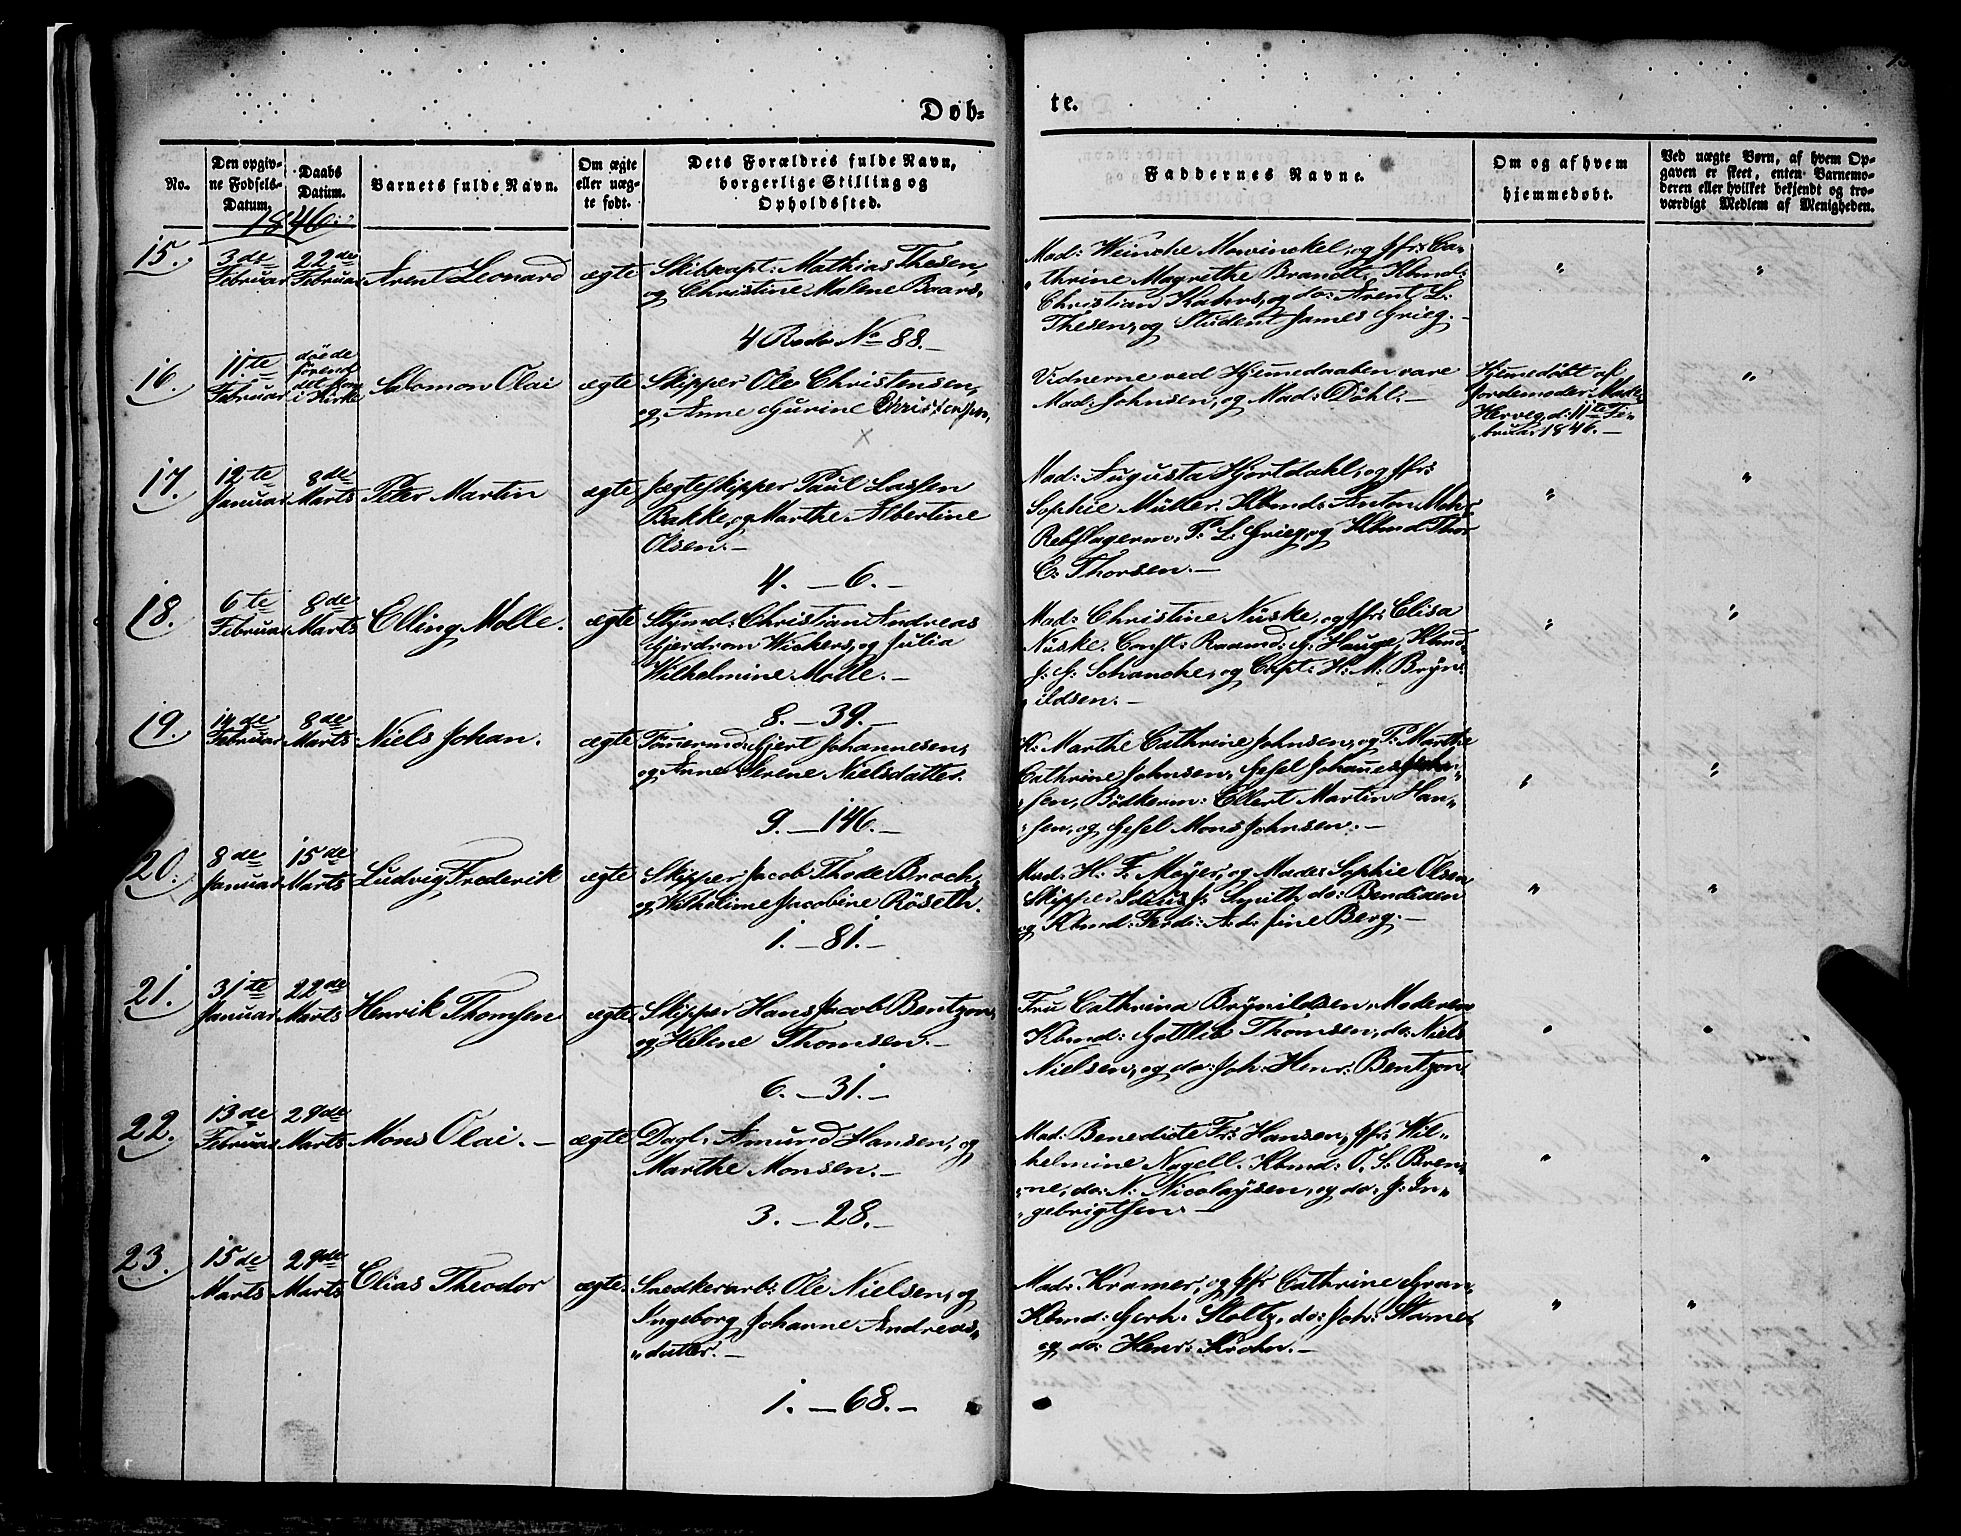 Døb=
te.
No.
Den opgiv-
ne Fødsels-
Datum.
Daabs
Datum.
Barnets fulde Navn.
Om ægte
eller uæg-
te født.
Dets Forældres fulde Navn,
borgerlige Stilling og
Opholdssted.
Faddernes Navne.
Om og af hvem
hjemmedøbt.
Ved uægte Børn, af hvem Op-
gaven er skeet, enten Barnemo-
deren eller hvilket bekjendt og tro-
værdigt Medlem af Menigheden.
1846.
15.
3de
Februar
22de
Februar
Arent Leonard
ægte
Skibscapt: Mathias Thesen,
og Christine Malene Baars.
4 Rode No 88.
Mad: Weinche Mowinckel, og Jfr: Ca-
thrine Magrethe Brandt, Kbmd:
Christian Kahrs, og do: Arent L:
Thesen, og Student James Grieg.
16.
11te
Februar
døede
førend
det kom
i Kirke
Salomon Olai
ægte
Skipper Ole Christensen,
og Anne Gurine Christensen.
Vidnerne ved Hjemmedaaben vare
Mad: Johnsen, og Mad: Dahl.
Hjemmedøbt af
Jordemoder Mad:
Herveg, d: 11te Fe-
bruar 1846.
17.
12te
Januar
8de
Marts
Peter Martin
ægte
Jægteskipper Paul Lassen
Bakke, og Marthe Albertine
Olsen.
4. — 6.
Mad: Augusta Hjortdahl, og Jfr:
Sophie Müller, Kbmd: Anton Mohr
Rebslagerm. P. L. Grieg, og Kbmd Thor
C. Thorsen.
18.
6te
Februar
8de
Marts
Elling Molle.
ægte
Styrmd: Christian Andreas
Gjerdrom Wickers, og Julia
Wilhelmine Molle.
8. — 39.
Mad: Christine Nüske, og Jfr: Elisa
Nüske. Const: Raamd: G: Hauge, Kbmd
J. G: Schancke, og Capt: H: M: Bryn-
ildsen.
19.
14de
Februar
8de
Marts
Niels Johan.
ægte
Tømmermd: Gjert Johannesen,
og Anne Serene Nielsdatter.
9. — 146.
K: Marthe Cathrine Johnsen, og P: Marthe
Cathrine Johnsen, Gesel Johannes Johan-
sen, Bødkerm: Ellert Martin Han-
sen, og Gesel Mons Johnsen.
20.
8de
Januar
15de
Marts
Ludvig Frederik
ægte
Skipper Jacob Thode Broch,
og Wilhelmine Jacobine Røseth.
1. — 81.
Mad: H. F. Mayer, og Mad: Sophie Olsen
Skipper J. Smith, do: Bendixen
og Kbmd: Ferd: A. d: fine Berg.
21.
31te
Januar
22de
Marts
Henrik Thomsen
ægte
Skipper Hans Jacob Bentzon,
og Helene Thomsen.
6. — 31.
Fru Cathrina Brynildsen, Moderen
Kbmd: Gottlieb Thomsen, do: Niels
Nielsen, og do: Joh: Henr: Bentzon.
22.
13de
Februar
29de
Marts
Mons Olai.
ægte
Dagl: Amund Hansen, og
Marthe Monsen.
3. — 28.
Mad: Benedicte Fr: Hansen, Jfr: Wil-
helmine Nagell. Kbmd: O. S. Bren-
ne, do: N: Nicolaysen, og do: J: In-
gebrigtsen.
23.
15de
Marts
29de
Marts
Elias Theodor
ægte
Snedkerarb: Ole Nielsen, og
Ingeborg Johanne Andreas-
datter.
1. — 68.
Mad: Kramer, og Jfr Cathrine Gran
Kbmd: Gerh. Stoltz, do: Joh: Stamer
og do: Henr: Krohn.